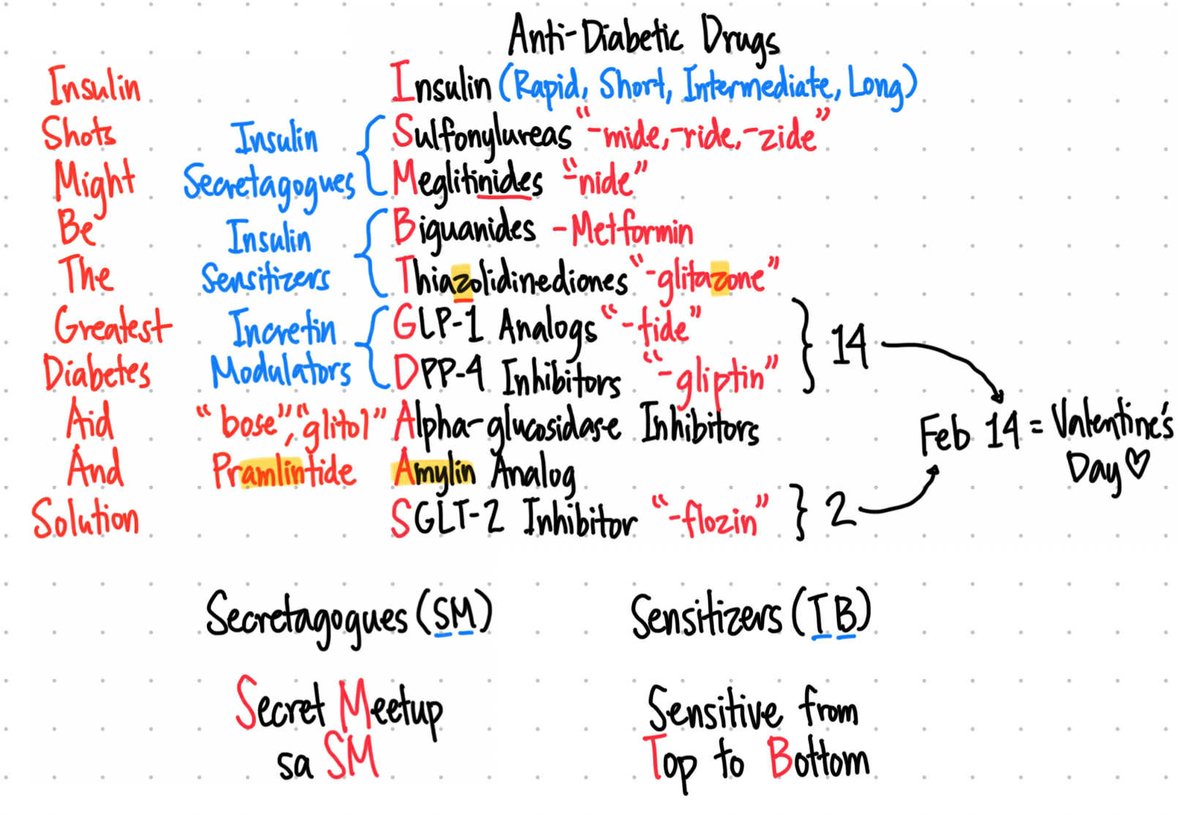 Anti-Diabetic Drugs
Insulin Insulin (Rapid, Short, Intermediate, Long)
Shots Insulin Sulfonylureas "-mide,-ride,-zide"
Might Secretagogues Meglitinides "nide"
Be Insulin Biguanides -Metformin
The Sensitizers Thiazolidinediones "-glitazone"
Greatest Incretin GLP-1 Analogs "-tide" 14
Diabetes Modulators DPP-4 Inhibitors "-gliptin"
Aid "bose","glitol" Alpha-glucosidase Inhibitors Feb 14 = Valentine's Day ♡
And Pramlintide Amylin Analog
Solution SGLT-2 Inhibitor "-flozin" 2
Secretagogues (SM) Sensitizers (TB)
Secret Meetup Sensitive from
sa SM Top to Bottom